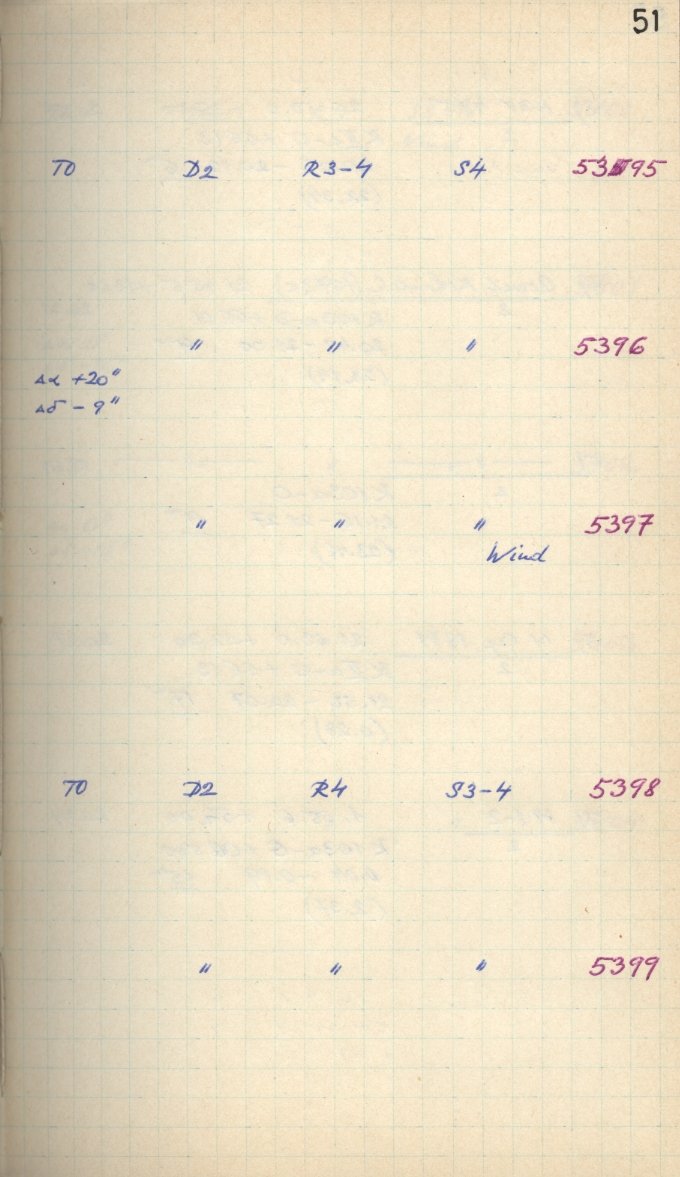 51
TO D2 R3-4 S4 5395
" " " 5396
Δα +20"
Δδ - 9"
" " " 5397
Wind
TO D2 R4 S3-4 5398
" " " 5399